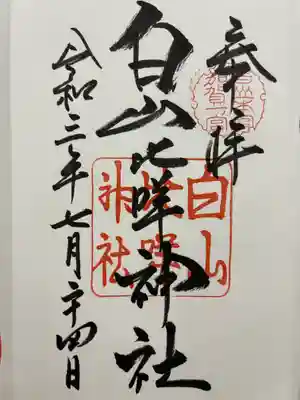 奉拝
白山比咩神社
令和三年七月二十四日
白山
比咩
神社